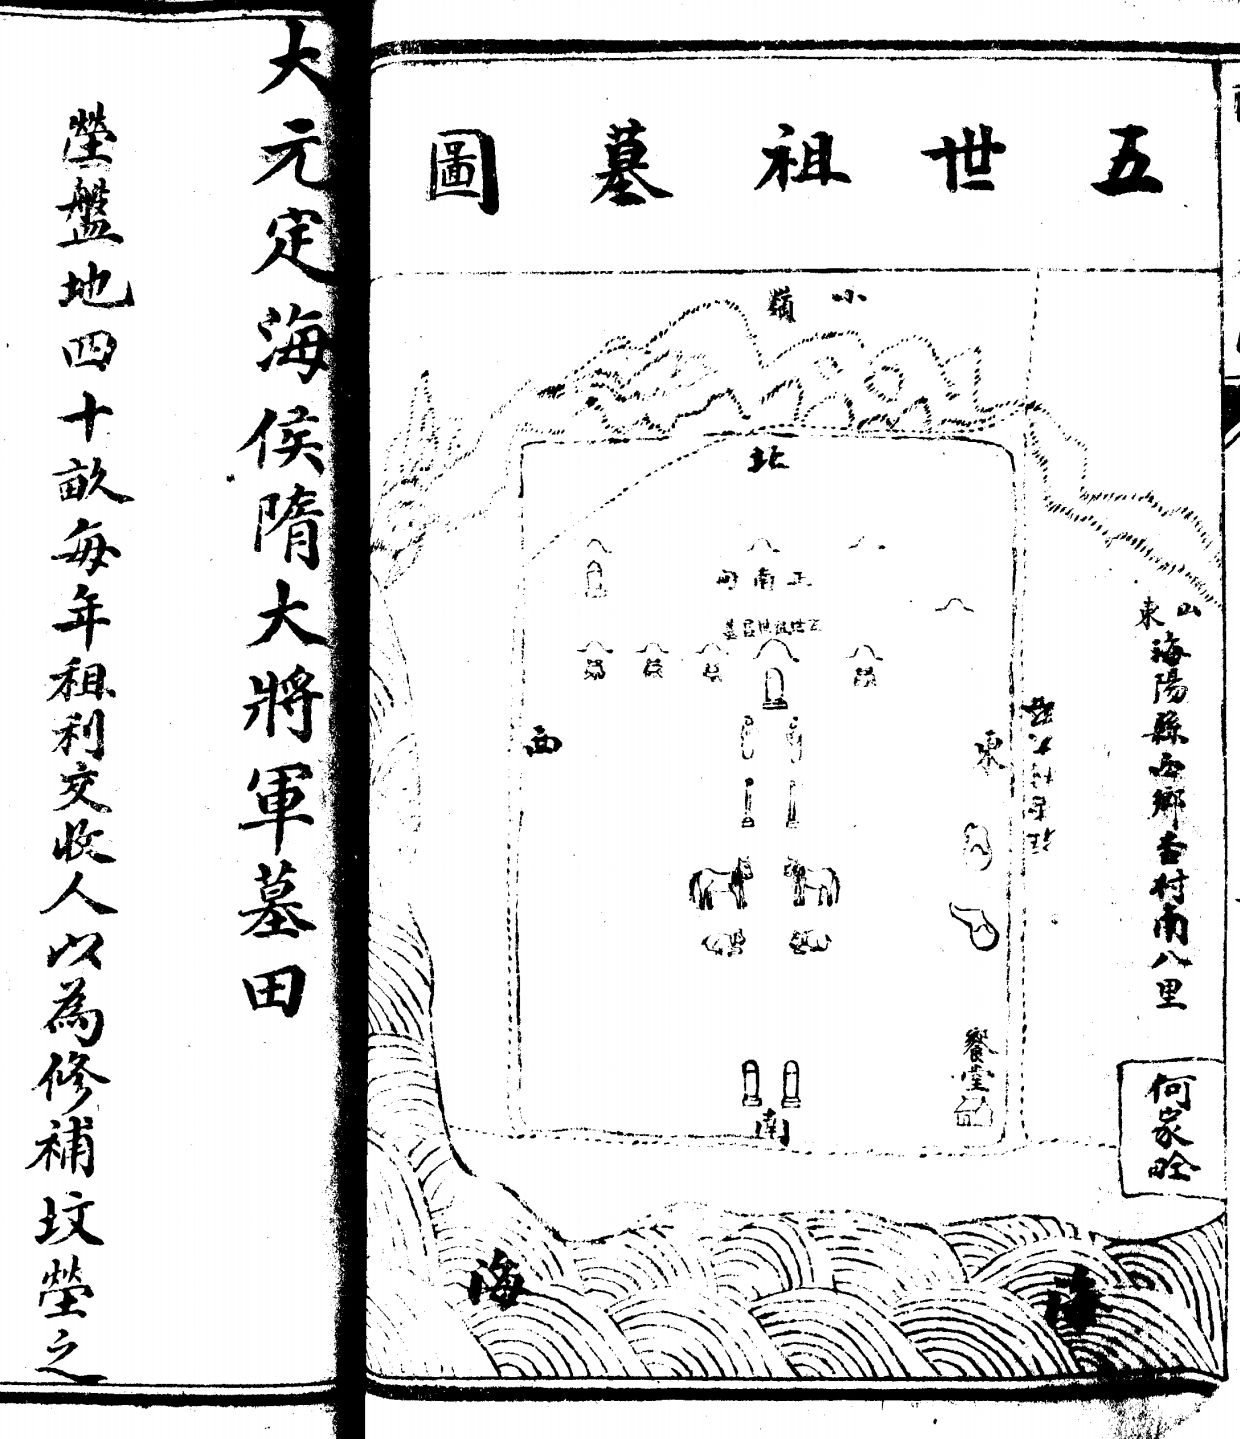 五世祖墓圖
小嶺
北
山東海陽縣西鄉杳村南八里
東
西
饗堂
南
何家畛
海
海
大元定海侯隋大將軍墓田
塋盤地四十畝每年租利交收人以為修補坟塋之